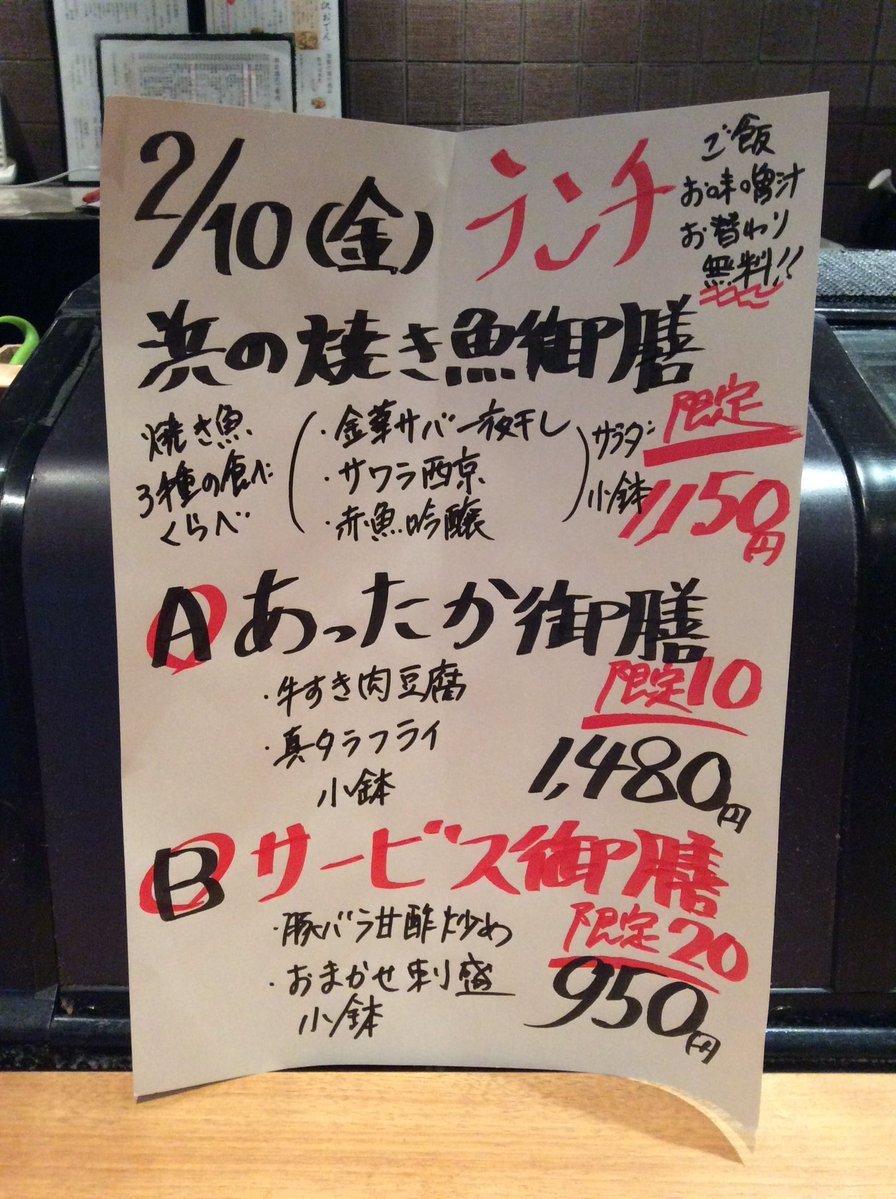 2/10(金) ランチ
ご飯
お味噌汁
お替わり
無料!!
浜の焼き魚御膳
限定
焼き魚
3種の食べ
くらべ
・金華サバ一夜干し
・サワラ西京
・赤魚吟醸
サラダ
小鉢
1,150円
A あったか御膳
・牛すき肉豆腐
限定10
・真タラフライ
小鉢
1,480円
B サービス御膳
・豚バラ甘酢炒め
限定20
・おまかせ刺盛
小鉢
950円